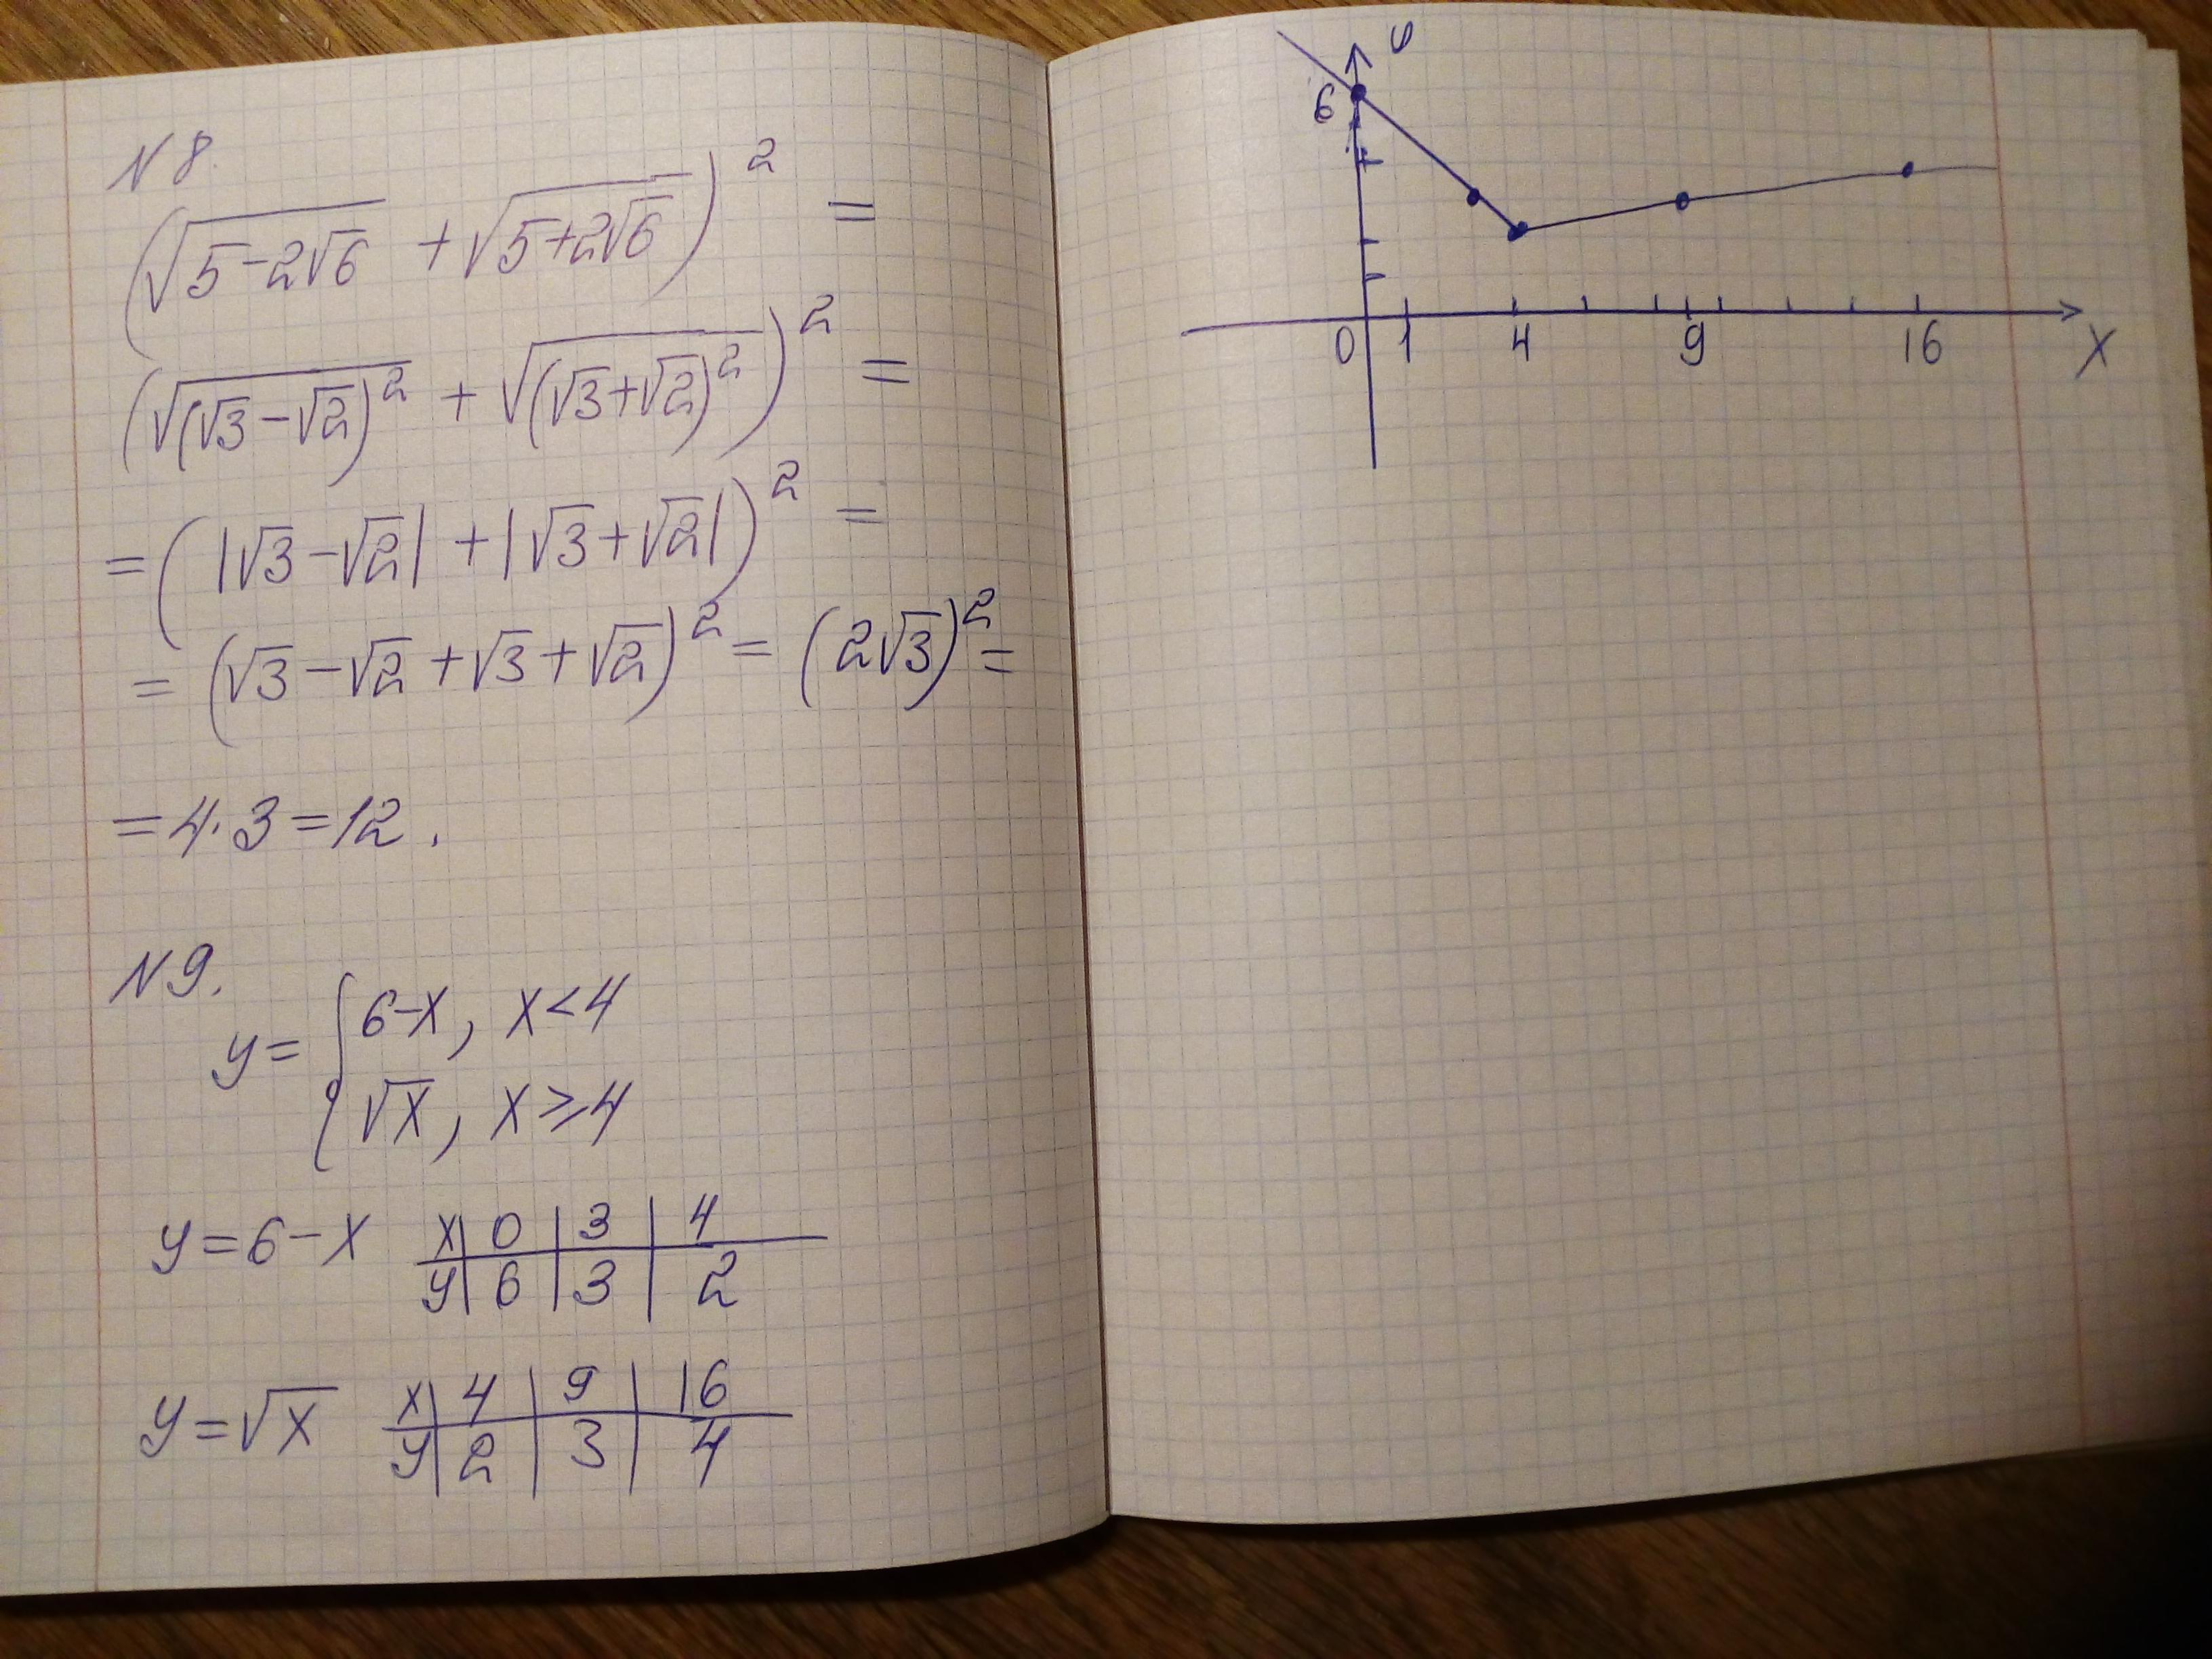 N 8.
(√(5-2√6) + √(5+2√6))² =
(√((√3-√2)²) + √((√3+√2)²))² =
= (|√3-√2| + |√3+√2|)² =
= (√3-√2+√3+√2)² = (2√3)² =
= 4·3=12.
N 9.
y= { 6-x, x<4
√x, x⩾4
y=6-x x | 0 | 3 | 4
y | 6 | 3 | 2
y=√x x | 4 | 9 | 16
y | 2 | 3 | 4
y
6
0 1 4 9 16 x